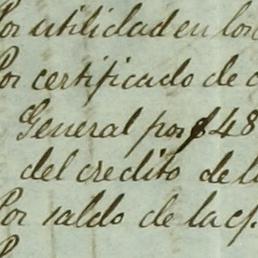 Por utilidad en los
Por certificado de
General por $48
del credito de l
Por saldo de la c/.